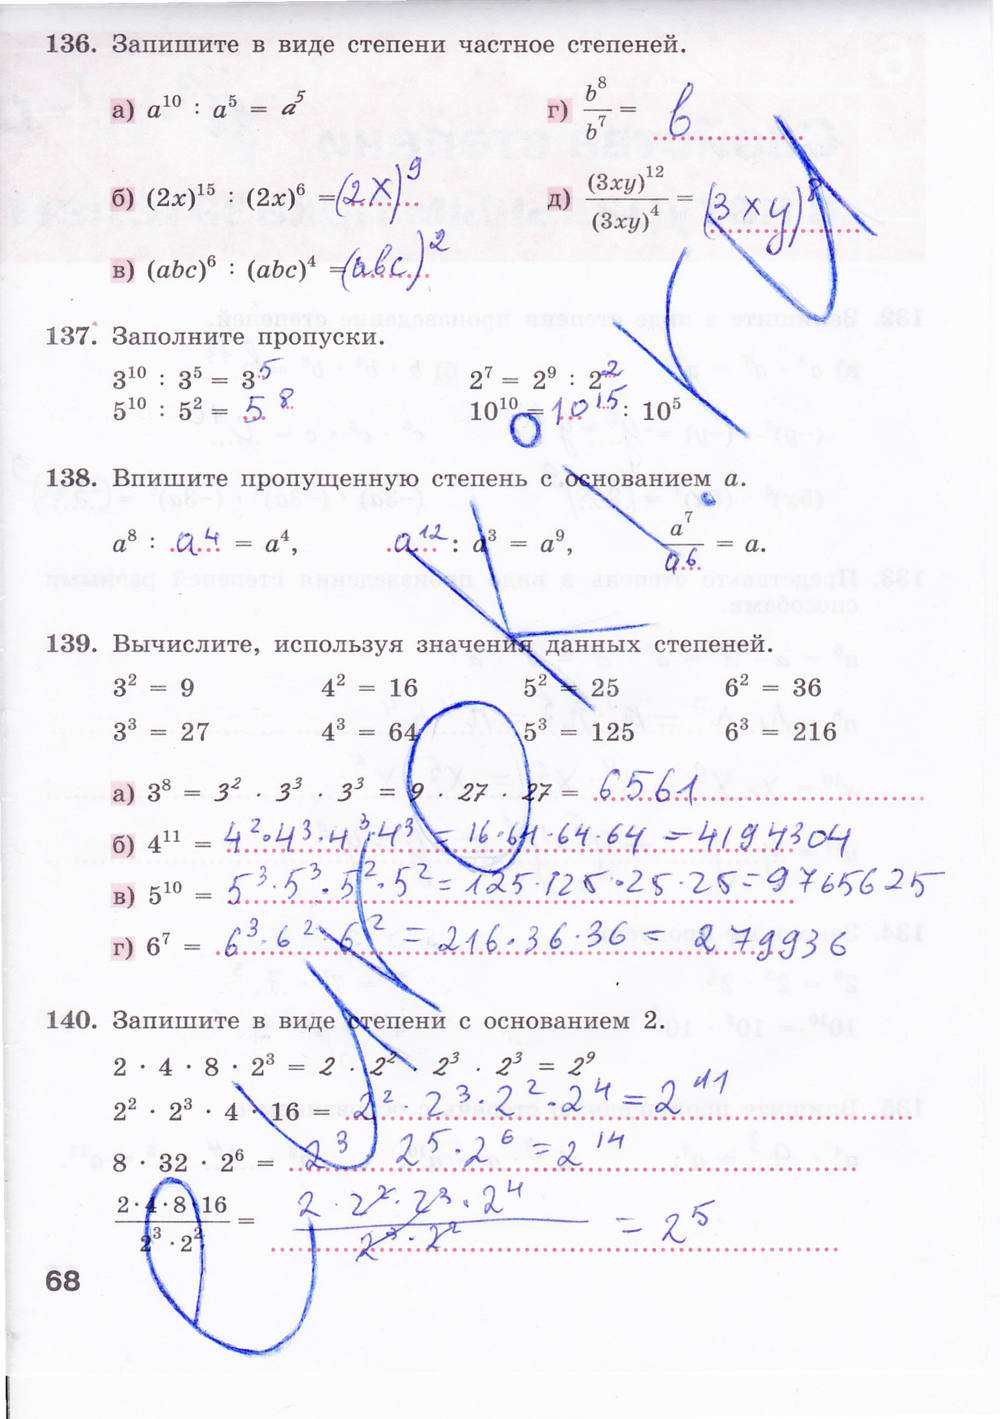 136. Запишите в виде степени частное степеней.
а) a¹⁰ : a⁵ = a⁵
г) b⁸/b⁷ = b
б) (2x)¹⁵ : (2x)⁶ = (2x)⁹
д) (3xy)¹²/(3xy)⁴ = (3xy)⁸
в) (abc)⁶ : (abc)⁴ = (abc)²
137. Заполните пропуски.
3¹⁰ : 3⁵ = 3⁵
2⁷ = 2⁹ : 2²
5¹⁰ : 5² = 5⁸
10¹⁰ = 10¹⁵ : 10⁵
138. Впишите пропущенную степень с основанием a.
a⁸ : a⁴ = a⁴, a¹² : a³ = a⁹, a⁷/a⁶ = a.
139. Вычислите, используя значения данных степеней.
3² = 9 4² = 16 5² = 25 6² = 36
3³ = 27 4³ = 64 5³ = 125 6³ = 216
а) 3⁸ = 3² · 3³ · 3³ = 9 · 27 · 27 = 6561
б) 4¹¹ = 4² · 4³ · 4³ · 4³ = 16 · 64 · 64 · 64 = 4194304
в) 5¹⁰ = 5³ · 5³ · 5² · 5² = 125 · 125 · 25 · 25 = 9765625
г) 6⁷ = 6³ · 6² · 6² = 216 · 36 · 36 = 279936
140. Запишите в виде степени с основанием 2.
2 · 4 · 8 · 2³ = 2 · 2² · 2³ · 2³ = 2⁹
2² · 2³ · 4 · 16 = 2² · 2³ · 2² · 2⁴ = 2¹¹
8 · 32 · 2⁶ = 2³ 2⁵ · 2⁶ = 2¹⁴
2 · 4 · 8 · 16/2³ · 2² = 2 · 2² · 2³ · 2⁴/2³ · 2² = 2⁵
68